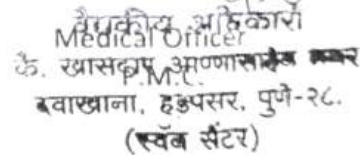 वैद्यकीय अधिकारी
Medical Officer
P.M.C.
कै. खासदार आण्णासाहेब मगर
दवाखाना, हडपसर, पुणे-२८.
(स्वॅब सेंटर)